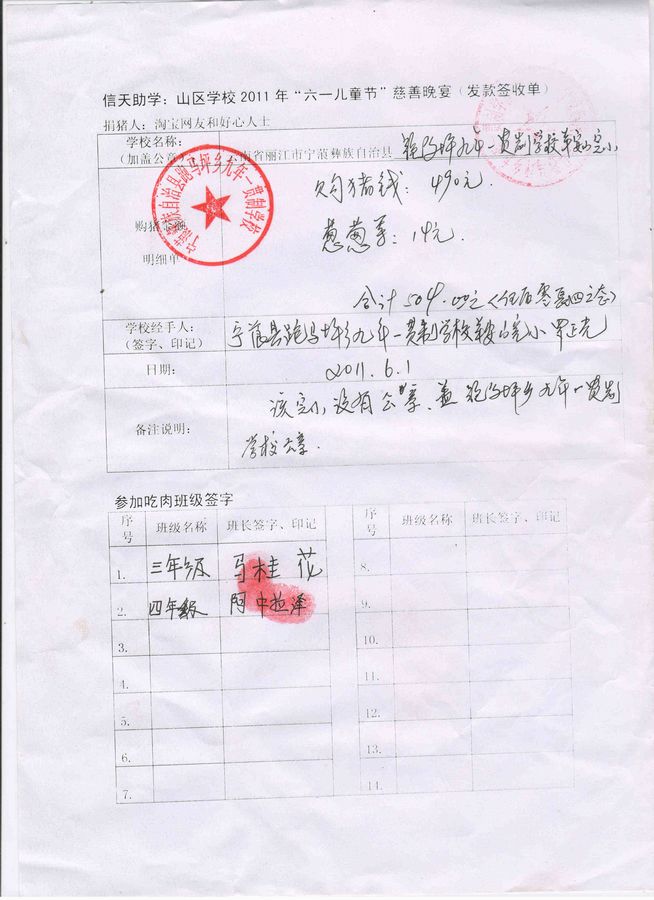 信天助学：山区学校 2011 年“六一儿童节”慈善晚宴（发款签收单）
捐猪人：淘宝网友和好心人士
学校名称：
（加盖公章） 云南省丽江市宁蒗彝族自治县 跑马坪九年一贯制学校 完小
宁蒗彝族自治县跑马坪乡九年一贯制学校
购猪
明细单
购猪钱：490元.
葱 ：14元.
合计504.00元（伍佰零 四元 ）
学校经手人：
（签字、印记）
宁蒗县跑马坪乡九年一贯制学校 完小 罗正光
日期：
2011.6.1
备注说明：
该完小没有公章、盖跑马坪乡九年一贯制
学校公章.
参加吃肉班级签字
序号 班级名称 班长签字、印记 序号 班级名称 班长签字、印记
1. 三年级 马桂花 8.
2. 四年级 阿中拉泽 9.
3. 10.
4. 11.
5. 12.
6. 13.
7. 14.